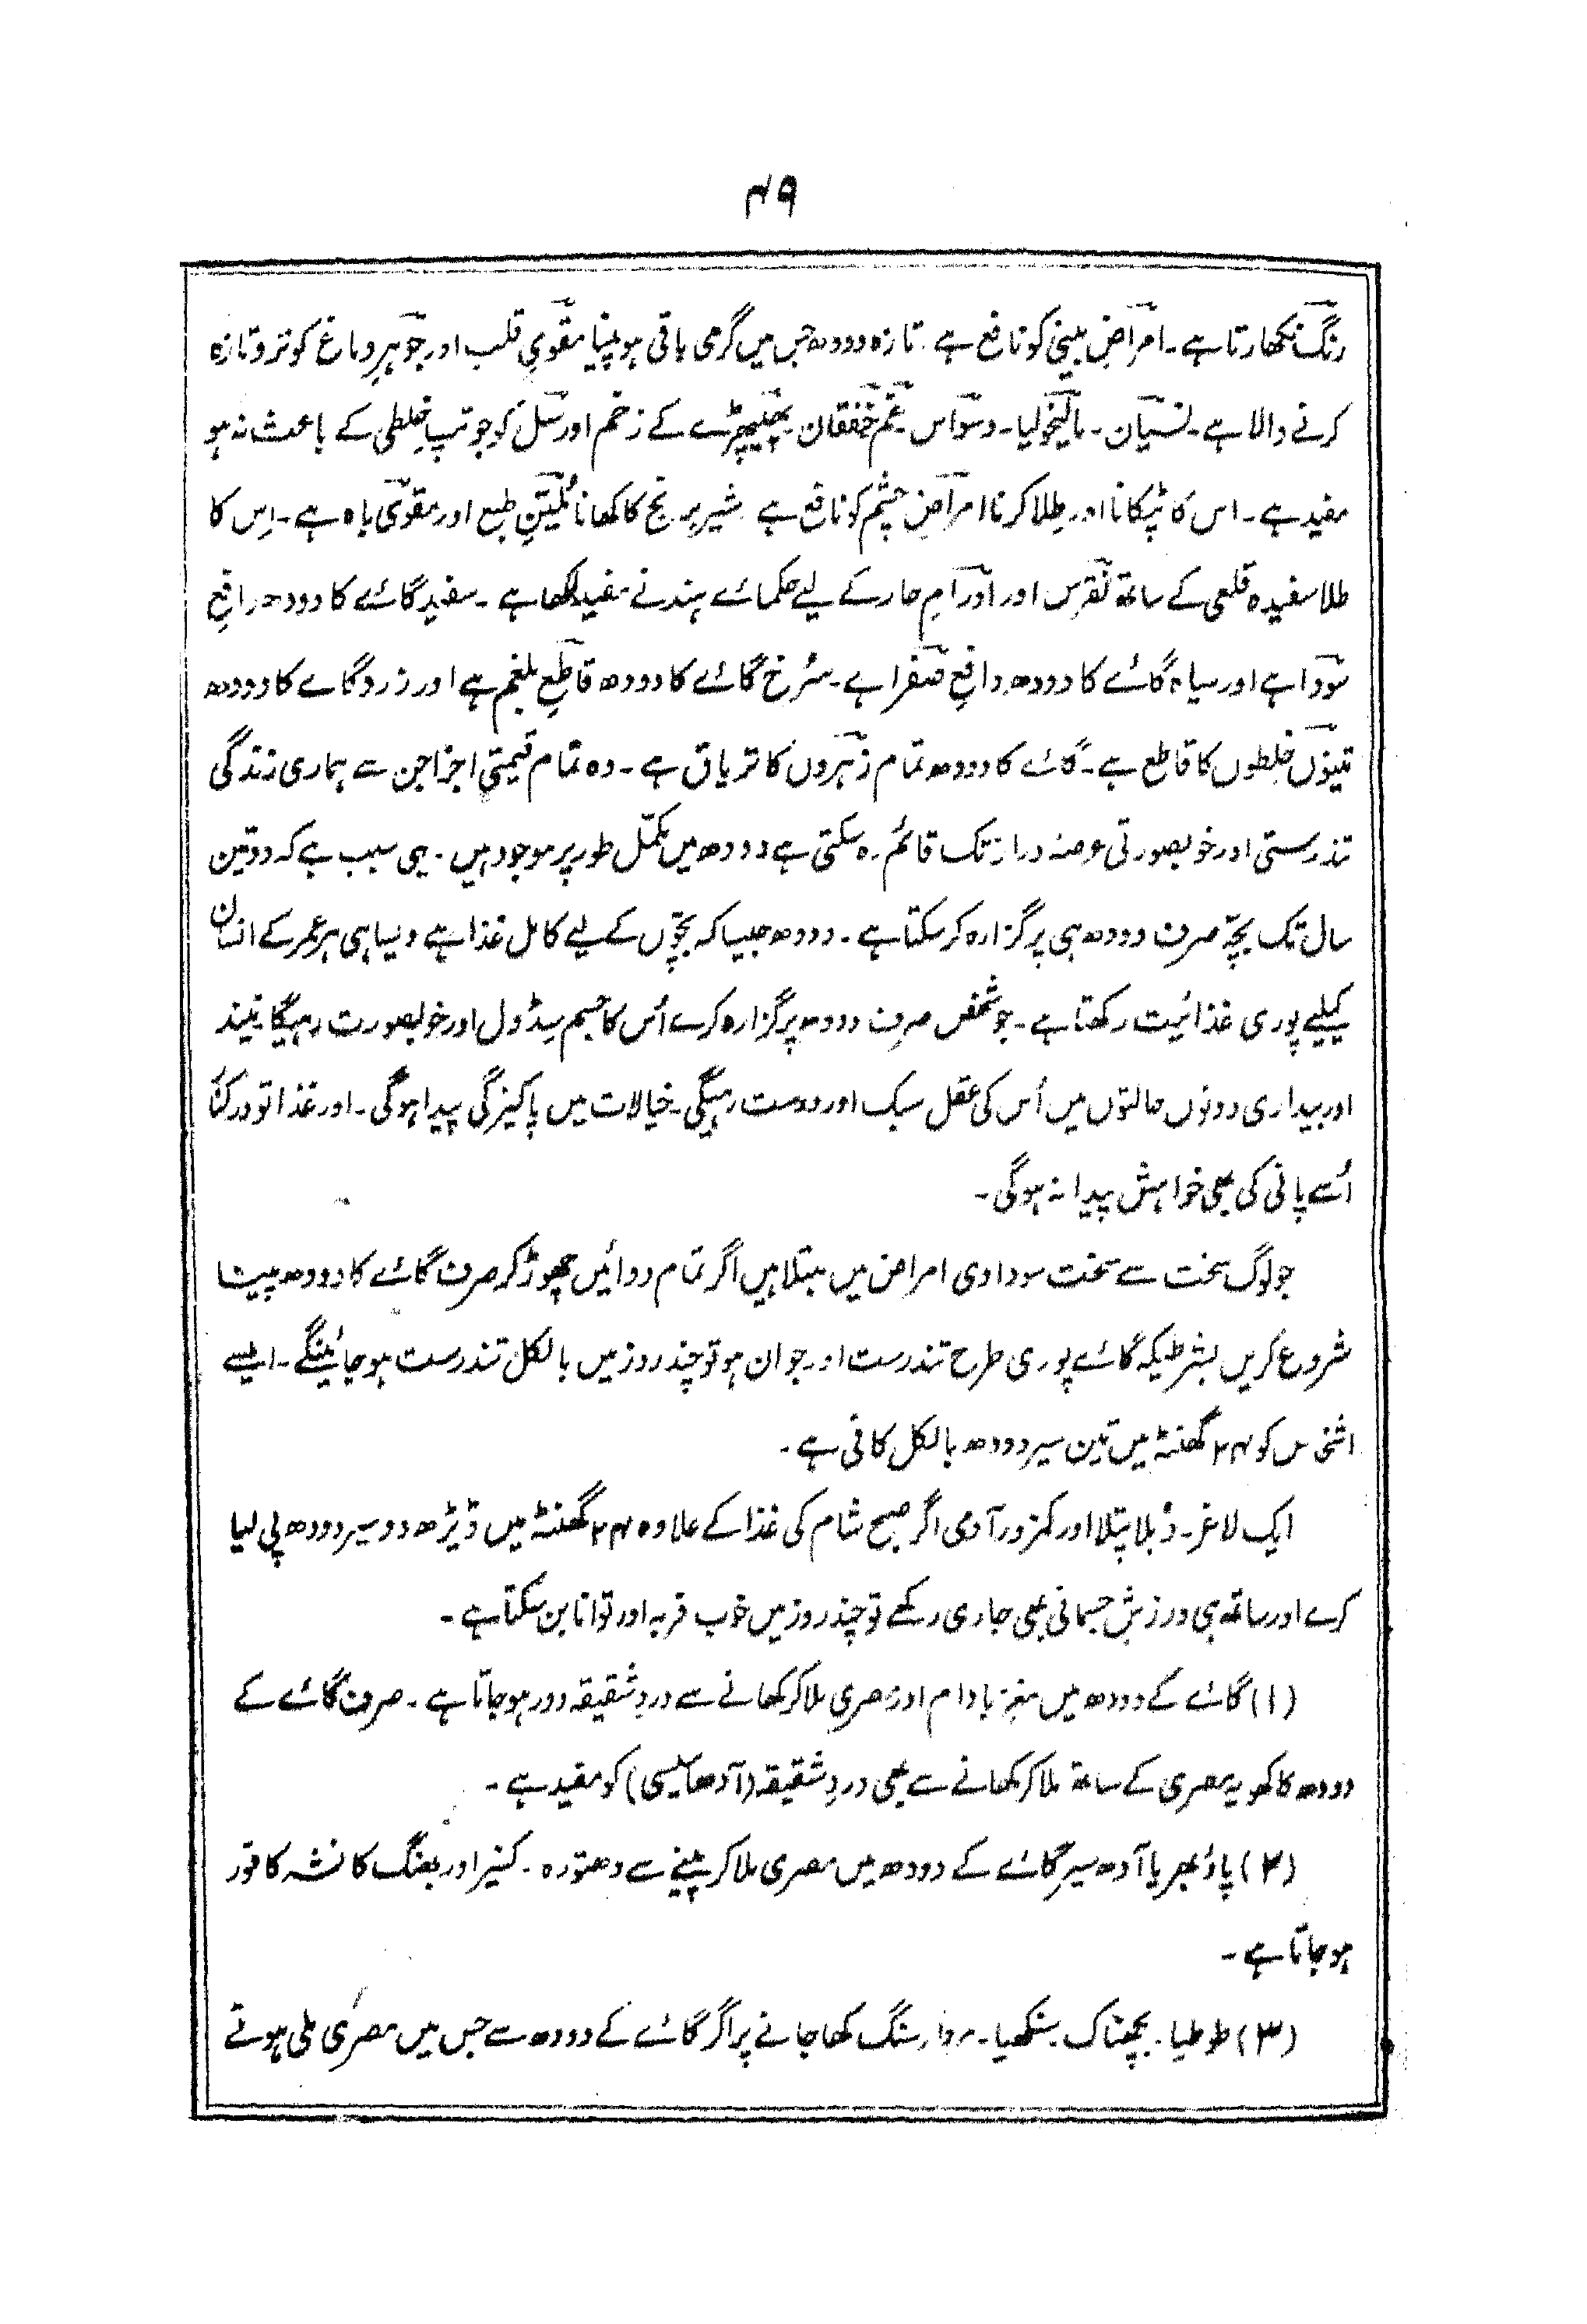 ۴۹
رنگ نکھارتا ہے۔ امراضِ بلغمی کو نافع ہے۔ تازہ دودھ جس میں گرمی باقی ہو پینا مقوّیِ قلب اور جوہرِ دماغ کو تر و تازہ
کرنے والا ہے۔ نسیان۔ مالیخولیا۔ وسواس۔ غم خفقان۔ پھیپھڑے کے زخم اور سل کو جو تپِ خلطی کے باعث نہ ہو
مفید ہے۔ اس کا ٹپکانا اور طلا کرنا امراضِ چشم کو نافع ہے۔ شیر برنج کا کھانا مُلیّنِ طبع اور مقوّی باہ ہے۔ اِس کا
طلا سفیدہ قلعی کے ساتھ نقرس اور اورامِ حار کے لیے حکمائے ہند نے مفید لکھا ہے۔ سفید گائے کا دودھ رافعِ
سودا ہے اور سیاہ گائے کا دودھ دافعِ صفرا ہے۔ سُرخ گائے کا دودھ قاطعِ بلغم ہے اور زرد گائے کا دودھ
تینوں خلطوں کا قاطع ہے۔ گائے کا دودھ تمام زہروں کا تریاق ہے۔ وہ تمام قیمتی اجزا جن سے ہماری زندگی
تندرستی اور خوبصورتی عرصہ دراز تک قائم رہ سکتی ہے دودھ میں مکمّل طور پر موجود ہیں۔ یہی سبب ہے کہ دو تین
سال تک بچّہ صرف دودھ ہی پر گزارہ کر سکتا ہے۔ دودھ جیسا کہ بچّوں کے لیے کامل غذا ہے ویسا ہی ہر عمر کے انسان
کیلیے پوری غذائیت رکھتا ہے۔ جو شخص صرف دودھ پر گزارہ کرے اُس کا جسم سڈول اور خوبصورت رہیگا۔ نیند
اور بیداری دونوں حالتوں میں اُس کی عقل سبک اور درست رہیگی۔ خیالات میں پاکیزگی پیدا ہوگی۔ اور غذا تو درکنار
اُسے پانی کی بھی خواہش پیدا نہ ہوگی۔
جو لوگ سخت سے سخت سوداوی امراض میں مبتلا ہیں اگر تمام دوائیں چھوڑ کر صرف گائے کا دودھ پینا
شروع کریں بشرطیکہ گائے پوری طرح تندرست اور جوان ہو تو چند روز میں بالکل تندرست ہو جائینگے۔ ایسے
اشخاص کو ۲۴ گھنٹہ میں تین سیر دودھ بالکل کافی ہے۔
ایک لاغر۔ دُبلا پتلا اور کمزور آدمی اگر صبح شام کی غذا کے علاوہ ۲۴ گھنٹہ میں ڈیڑھ دو سیر دودھ پی لیا
کرے اور ساتھ ہی ورزشِ جسمانی بھی جاری رکھے تو چند روز میں خوب فربہ اور توانا بن سکتا ہے۔
(۱) گائے کے دودھ میں مغز بادام اور مصری ملا کر کھانے سے دردِ شقیقہ دور ہو جاتا ہے۔ صرف گائے کے
دودھ کا کھویہ مصری کے ساتھ ملا کر کھانے سے بھی دردِ شقیقہ (آدھاسیسی) کو مفید ہے۔
(۲) پاؤ بھر یا آدھ سیر گائے کے دودھ میں مصری ملا کر پینے سے دھتورہ۔ کنیر اور بھنگ کا نشہ کافور
ہو جاتا ہے۔
(۳) طوطیا۔ بچھناک۔ سنکھیا۔ مردار سنگ کھا جانے پر اگر گائے کے دودھ سے جس میں مصری ملی ہوئے